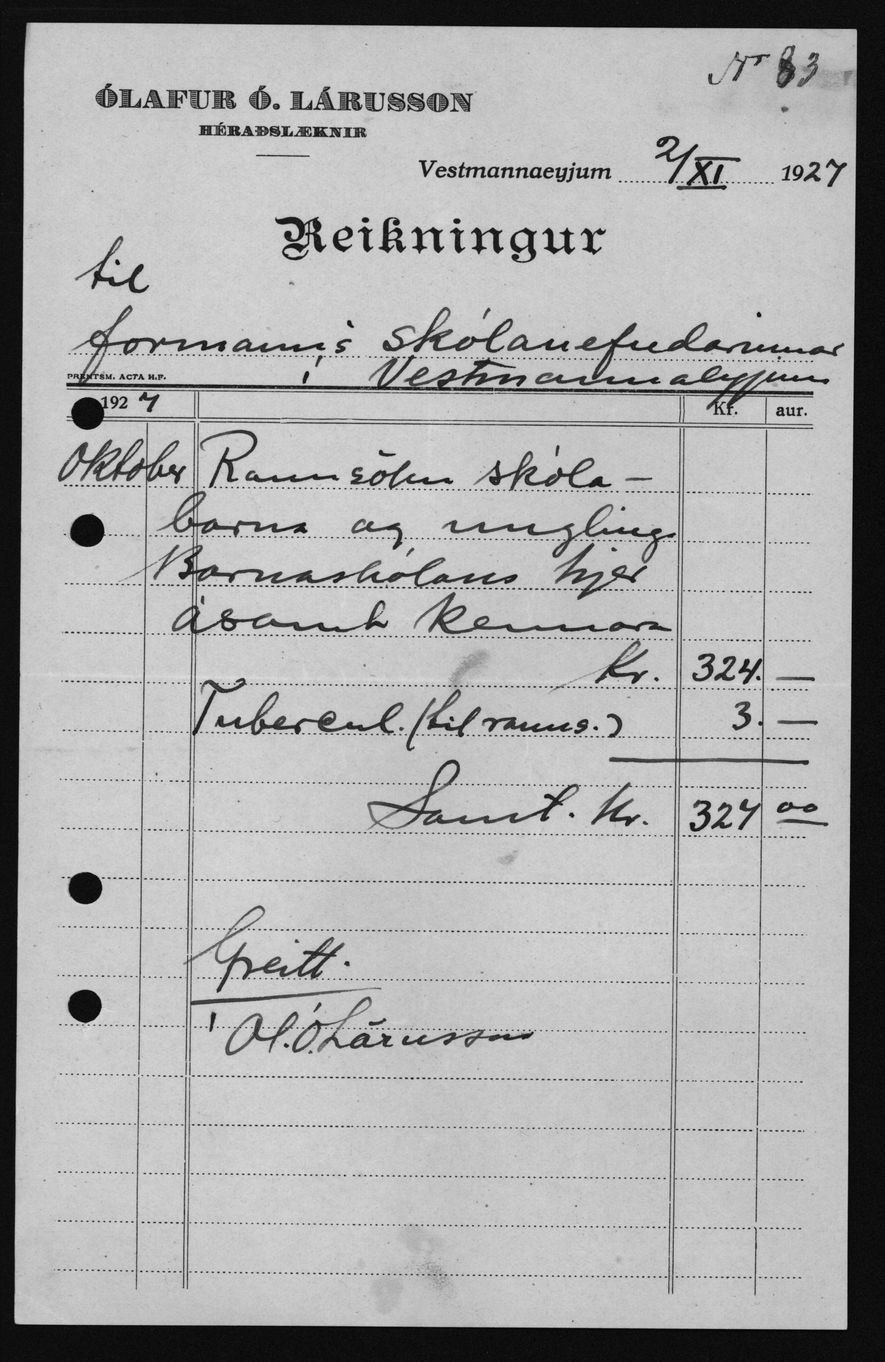 Nr 83
ÓLAFUR Ó. LÁRUSSON
HÉRAÐSLÆKNIR
Vestmannaeyjum 2/XI 1927
Reikningur
til
formanns skólanefndarinnar
í Vestmannaeyjum
PRENTSM. ACTA H.F.
1927 Kr. aur.
Október Rannsókn skóla-
barna og unglinga
Barnaskólans hjer
ásamt kennara
Kr. 324. —
Tubercul. (til ranns.) 3. —
Samt. Kr. 327 00
Greitt.
Ól. Ó. Lárusson